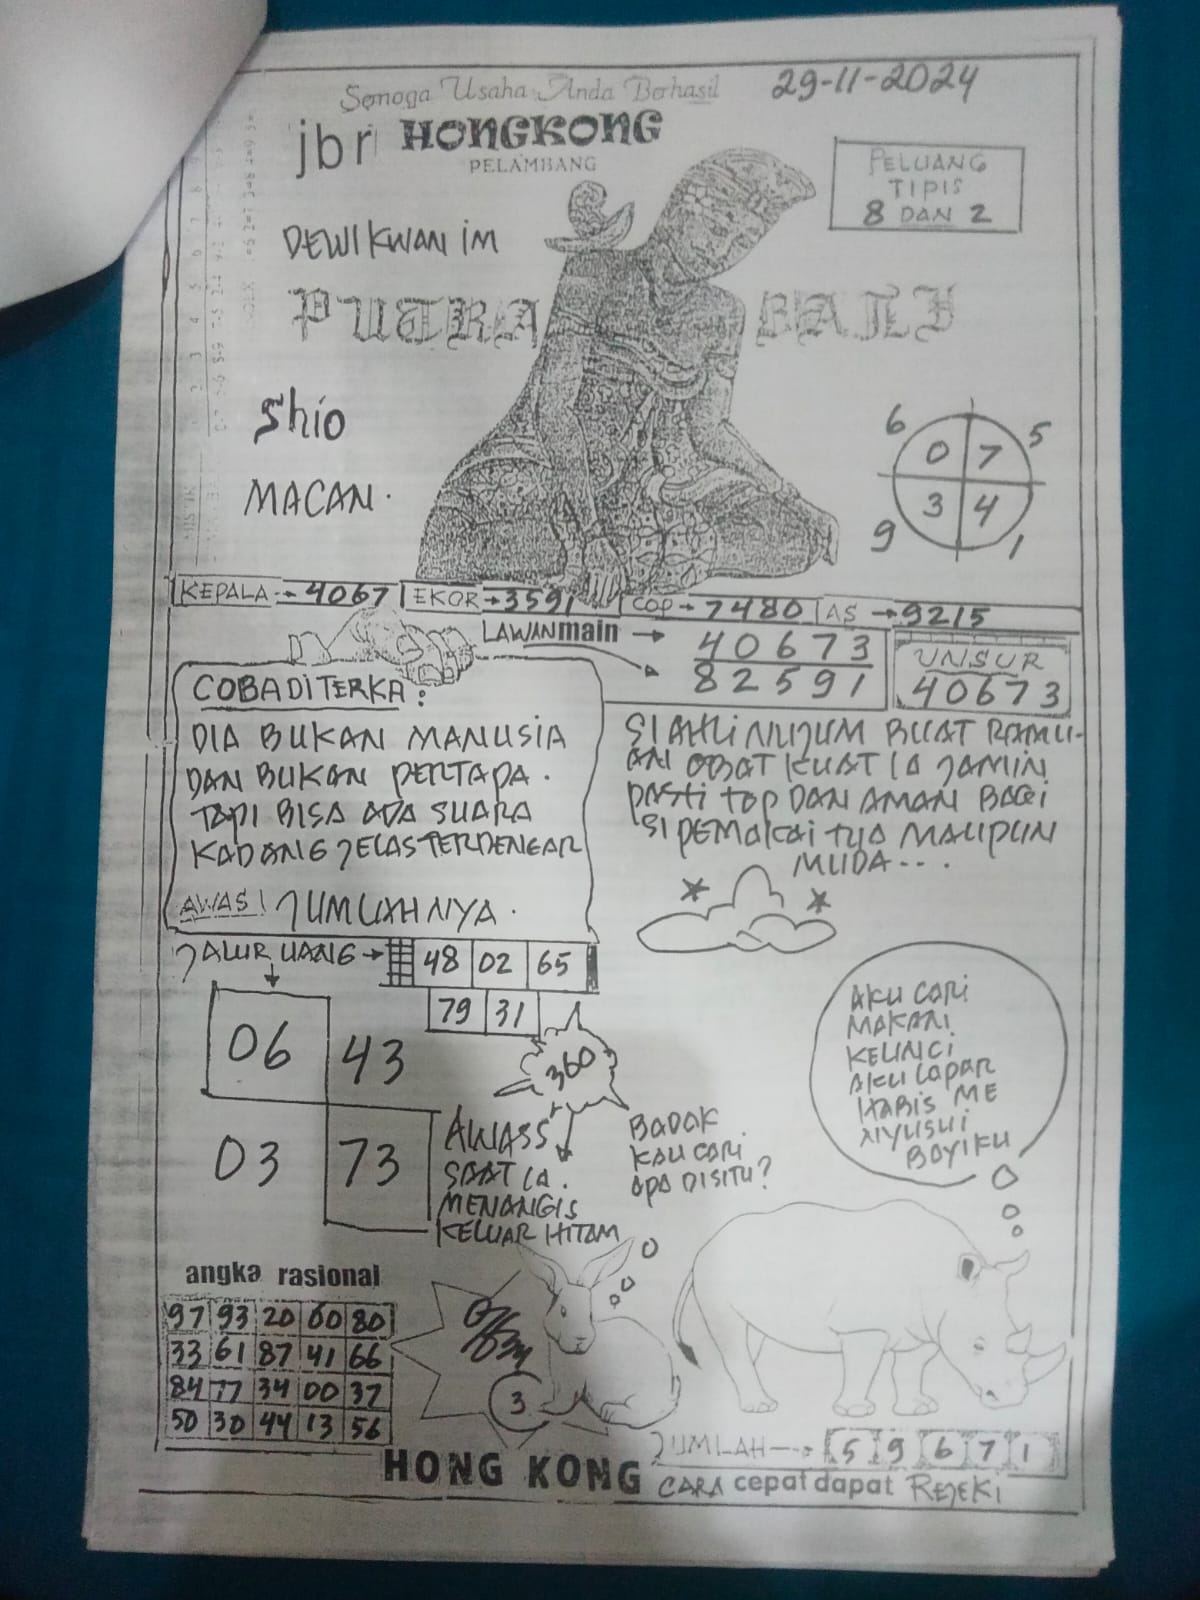 Semoga Usaha Anda Berhasil
29-11-2024
jbr HONGKONG
PELAMBANG
PELUANG
TIPIS
8 DAN 2
DEWI KWAN IM
PUTRA BALI
Shio
MACAN.
6 5
0 7
3 4
9 1
KEPALA → 4067 EKOR → 3591 COP → 7480 AS → 9215
LAWAN main → 40673
82591
UNSUR
40673
COBA DITERKA:
DIA BUKAN MANUSIA
DAN BUKAN PERTAPA.
TAPI BISA ADA SUARA
KADANG JELAS TERDENGAR
AWAS! JUMLAHNYA.
SI AHLI NUJUM BUAT RAMU-
AN OBAT KUAT IA JAMIN
PASTI TOP DAN AMAN BAGI
SI PEMAKAI TUA MAUPUN
MUDA---.
JALUR UANG → 48 02 65
79 31
06 43
03 73
360
AWASS
SAAT IA.
MENANGIS
KELUAR HITAM
BADAK
KAU CARI
APA DISITU?
AKU CARI
MAKAN
KELINCI
AKU LAPAR
HABIS ME
NYUSUI
BAYIKU
angka rasional
97 93 20 60 80
33 61 87 41 66
84 77 34 00 37
50 30 44 13 56
3
JUMLAH → 5 9 6 7 1
HONG KONG CARA cepat dapat REJEKI